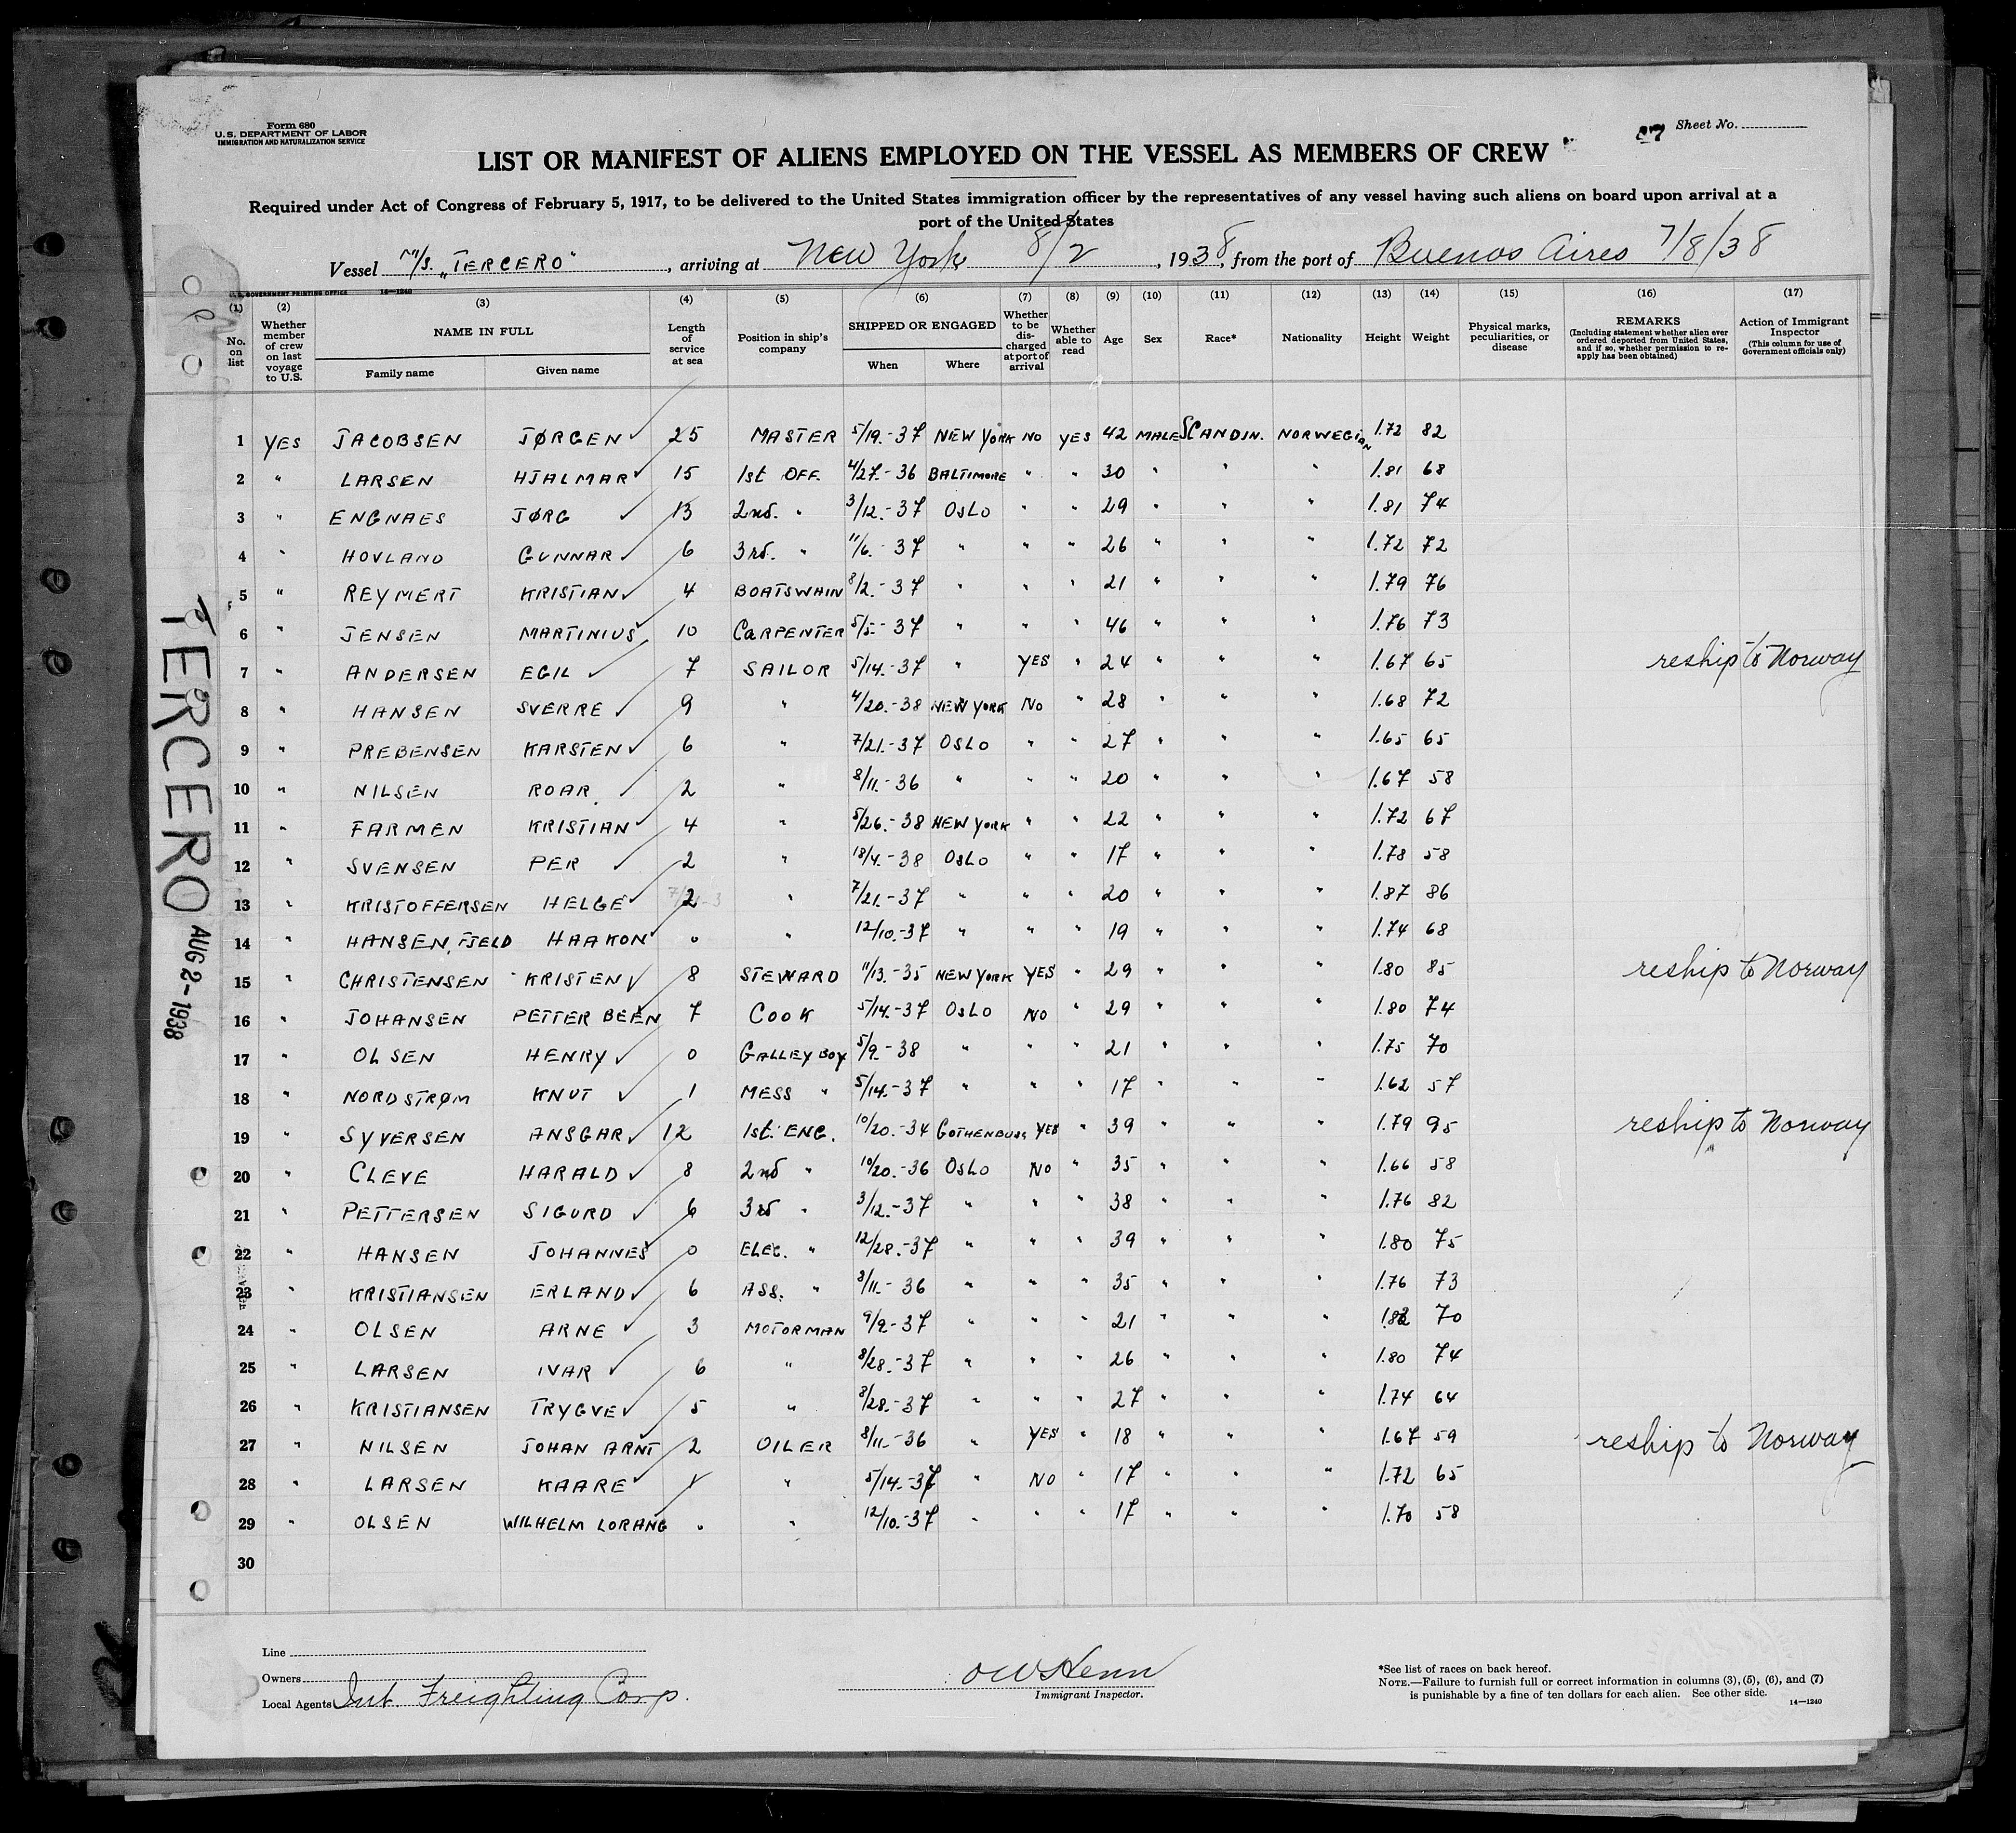 Form 680
U.S. DEPARTMENT OF LABOR
IMMIGRATION AND NATURALIZATION SERVICE
Sheet No.
LIST OR MANIFEST OF ALIENS EMPLOYED ON THE VESSEL AS MEMBERS OF CREW
Required under Act of Congress of February 5, 1917, to be delivered to the United States immigration officer by the representatives of any vessel having such aliens on board upon arrival at a
port of the United States
Vessel M/S. „TERCERO", arriving at New York 8/2, 1938, from the port of Buenos Aires 7/8/38
U.S. GOVERNMENT PRINTING OFFICE 14—1240
(1) No. on list
(2) Whether member of crew on last voyage to U.S.
(3) NAME IN FULL Family name Given name
(4) Length of service at sea
(5) Position in ship's company
(6) SHIPPED OR ENGAGED When Where
(7) Whether to be discharged at port of arrival
(8) Whether able to read
(9) Age
(10) Sex
(11) Race*
(12) Nationality
(13) Height
(14) Weight
(15) Physical marks, peculiarities, or disease
(16) REMARKS (Including statement whether alien ever ordered deported from United States, and if so, whether permission to reapply has been obtained)
(17) Action of Immigrant Inspector (This column for use of Government officials only)
1 YES JACOBSEN JØRGEN ✓ 25 MASTER 5/19.-37 NEW YORK NO YES 42 MALE SCANDIN. NORWEGIAN 1.72 82
2 " LARSEN HJALMAR ✓ 15 1st OFF. 4/27.-36 BALTIMORE " " 30 " " " 1.81 68
3 " ENGNAES JØRG ✓ 13 2nd. " 3/12.-37 OSLO " " 29 " " " 1.81 74
4 " HOVLAND GUNNAR ✓ 6 3rd. " 11/6.-37 " " " 26 " " " 1.72 72
5 " REYMERT KRISTIAN ✓ 4 BOATSWAIN 8/2.-37 " " " 21 " " " 1.79 76
6 " JENSEN MARTINIUS ✓ 10 CARPENTER 5/5.-37 " " " 46 " " " 1.76 73
7 " ANDERSEN EGIL ✓ 7 SAILOR 5/14.-37 " YES " 24 " " " 1.67 65 reship to Norway
8 " HANSEN SVERRE ✓ 9 " 4/20.-38 NEW YORK NO " 28 " " " 1.68 72
9 " PREBENSEN KARSTEN ✓ 6 " 7/21.-37 OSLO " " 27 " " " 1.65 65
10 " NILSEN ROAR ✓ 2 " 8/11.-36 " " " 20 " " " 1.67 58
11 " FARMEN KRISTIAN ✓ 4 " 5/26.-38 NEW YORK " " 22 " " " 1.72 67
12 " SVENSEN PER ✓ 2 " 18/4.-38 OSLO " " 17 " " " 1.78 58
13 " KRISTOFFERSEN HELGE ✓ 2 " 7/21.-37 " " " 20 " " " 1.87 86
14 " HANSEN, FJELD HAAKON ✓ 0 " 12/10.-37 " " " 19 " " " 1.74 68
15 " CHRISTENSEN KRISTEN ✓ 8 STEWARD 11/13.-35 NEW YORK YES " 29 " " " 1.80 85 reship to Norway
16 " JOHANSEN PETTER BEEN ✓ 7 COOK 5/14.-37 OSLO NO " 29 " " " 1.80 74
17 " OLSEN HENRY ✓ 0 GALLEY BOY 5/9.-38 " " " 21 " " " 1.75 70
18 " NORDSTRØM KNUT ✓ 1 MESS " 5/14.-37 " " " 17 " " " 1.62 57
19 " SYVERSEN ANSGAR ✓ 12 1st. ENG. 10/20.-34 GOTHENBURG YES " 39 " " " 1.79 95 reship to Norway
20 " CLEVE HARALD ✓ 8 2nd " 10/20.-36 OSLO NO " 35 " " " 1.66 58
21 " PETTERSEN SIGURD ✓ 6 3rd " 3/12.-37 " " " 38 " " " 1.76 82
22 " HANSEN JOHANNES ✓ 0 ELEC. " 12/28.-37 " " " 39 " " " 1.80 75
23 " KRISTIANSEN ERLAND ✓ 6 ASS. " 8/11.-36 " " " 35 " " " 1.76 73
24 " OLSEN ARNE ✓ 3 MOTORMAN 9/9.-37 " " " 21 " " " 70
25 " LARSEN IVAR ✓ 6 " 8/28.-37 " " " 26 " " " 1.80 74
26 " KRISTIANSEN TRYGVE ✓ 5 " 8/28.-37 " " " 27 " " " 1.74 64
27 " NILSEN JOHAN ARNT ✓ 2 OILER 8/11.-36 " YES " 18 " " " 1.67 59 reship to Norway
28 " LARSEN KAARE ✓ 1 " 5/14.-37 " NO " 17 " " " 1.72 65
29 " OLSEN WILHELM LORANG ✓ 0 " 12/10.-37 " " " 17 " " " 1.70 58
30
TERCERO AUG 2-1938
Line
Owners
Local Agents Int. Freighting Corp.
Immigrant Inspector.
*See list of races on back hereof.
NOTE.—Failure to furnish full or correct information in columns (3), (5), (6), and (7)
is punishable by a fine of ten dollars for each alien. See other side.
14—1240